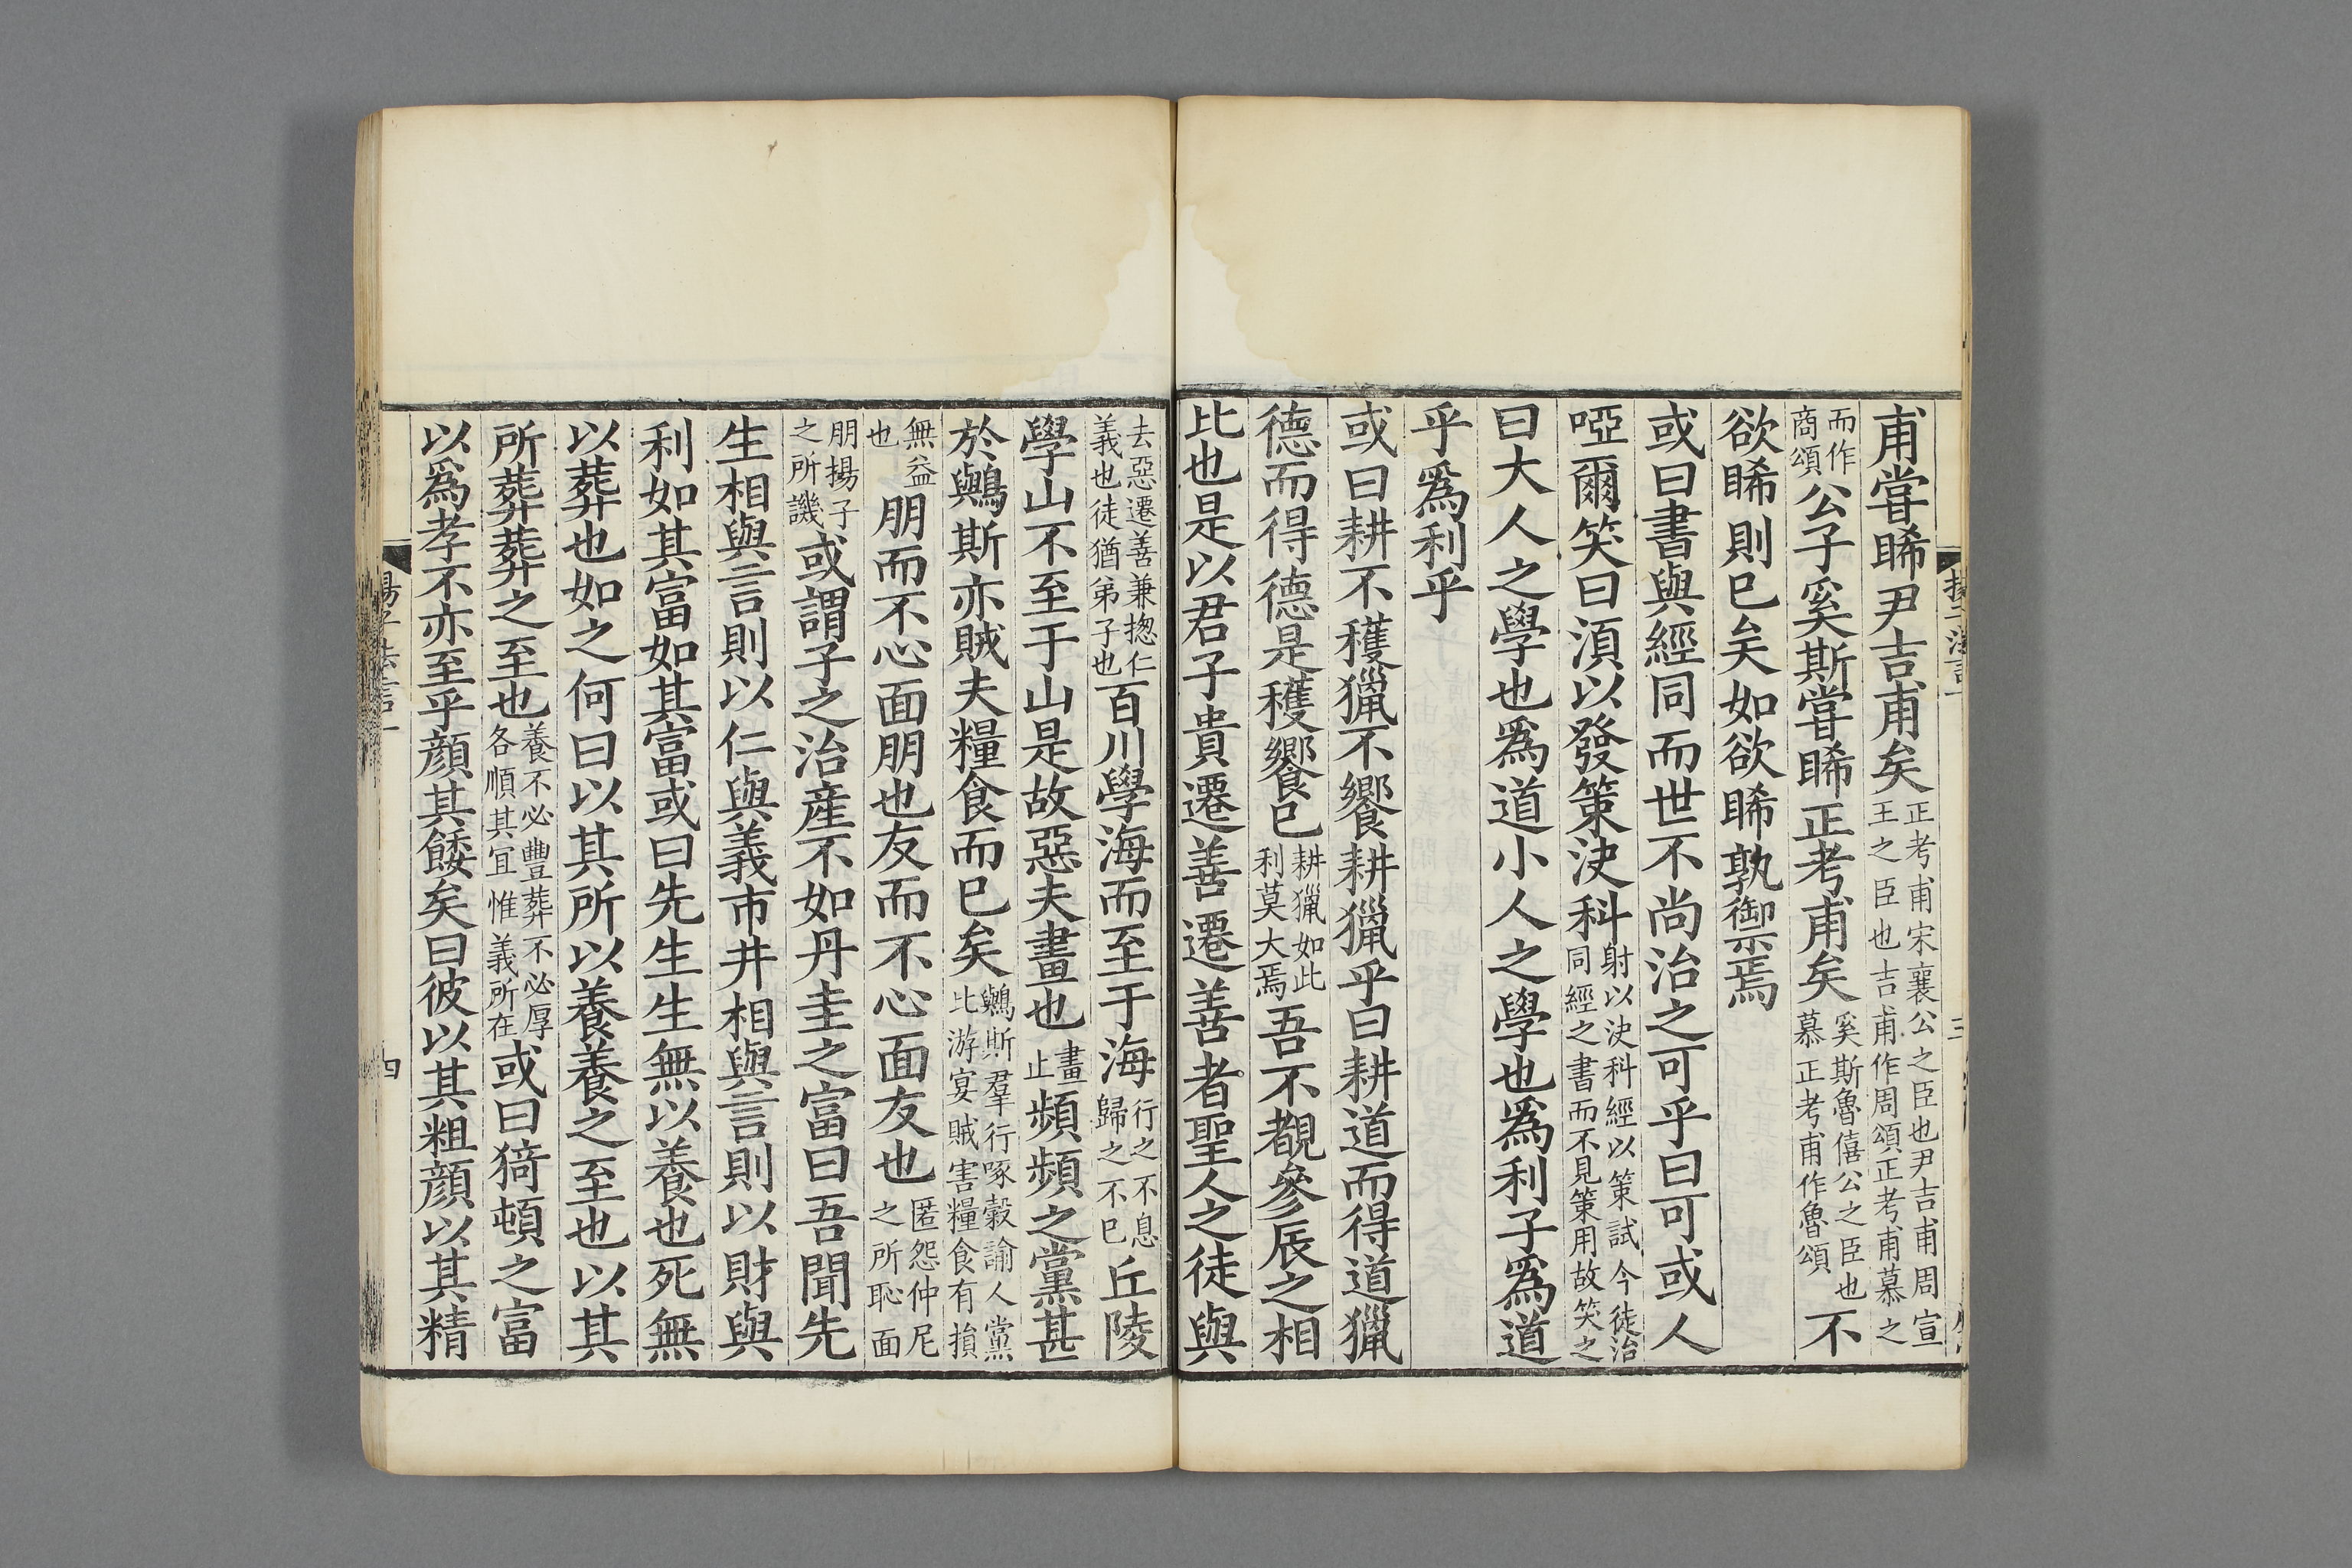 甫甞睎尹吉甫矣正考甫宋襄公之臣也尹吉甫周宣王之臣也吉甫作周頌正考甫慕之
而作商頌公子奚斯甞睎正考甫矣奚斯魯僖公之臣也慕正考甫作魯頌不
欲睎則巳矣如欲睎孰禦焉
或曰書與經同而世不尚治之可乎曰可或人
啞爾笑曰湏以發策决科射以决科經以策試今徒治同經之書而不見策用故笑之
曰大人之學也爲道小人之學也爲利子爲道
乎爲利乎
或曰耕不穫獵不饗耕獵乎曰耕道而得道獵
德而得德是穫饗巳耕獵如此利莫大焉吾不覩參辰之相
比也是以君子貴遷善遷善者聖人之徒與
去惡遷善兼揔仁義也徒猶弟子也百川學海而至于海行之不息歸之不巳丘陵
學山不至于山是故惡夫畫也畫止頻頻之黨甚
於鸒斯亦賊夫糧食而巳矣鸒斯羣行啄穀諭人黨比游宴賊害糧食有損
無益也朋而不心面朋也友而不心面友也匿怨仲尼之所恥面
朋揚子之所譏或謂子之治産不如丹圭之富曰吾聞先
生相與言則以仁與義市井相與言則以財與
利如其富如其富或曰先生生無以養也死無
以葬也如之何曰以其所以養養之至也以其
所葬葬之至也養不必豐葬不必厚各順其宜惟義所在或曰猗頓之富
以爲孝不亦至乎顔其餧矣曰彼以其粗顔以其精
揚子法言一
四